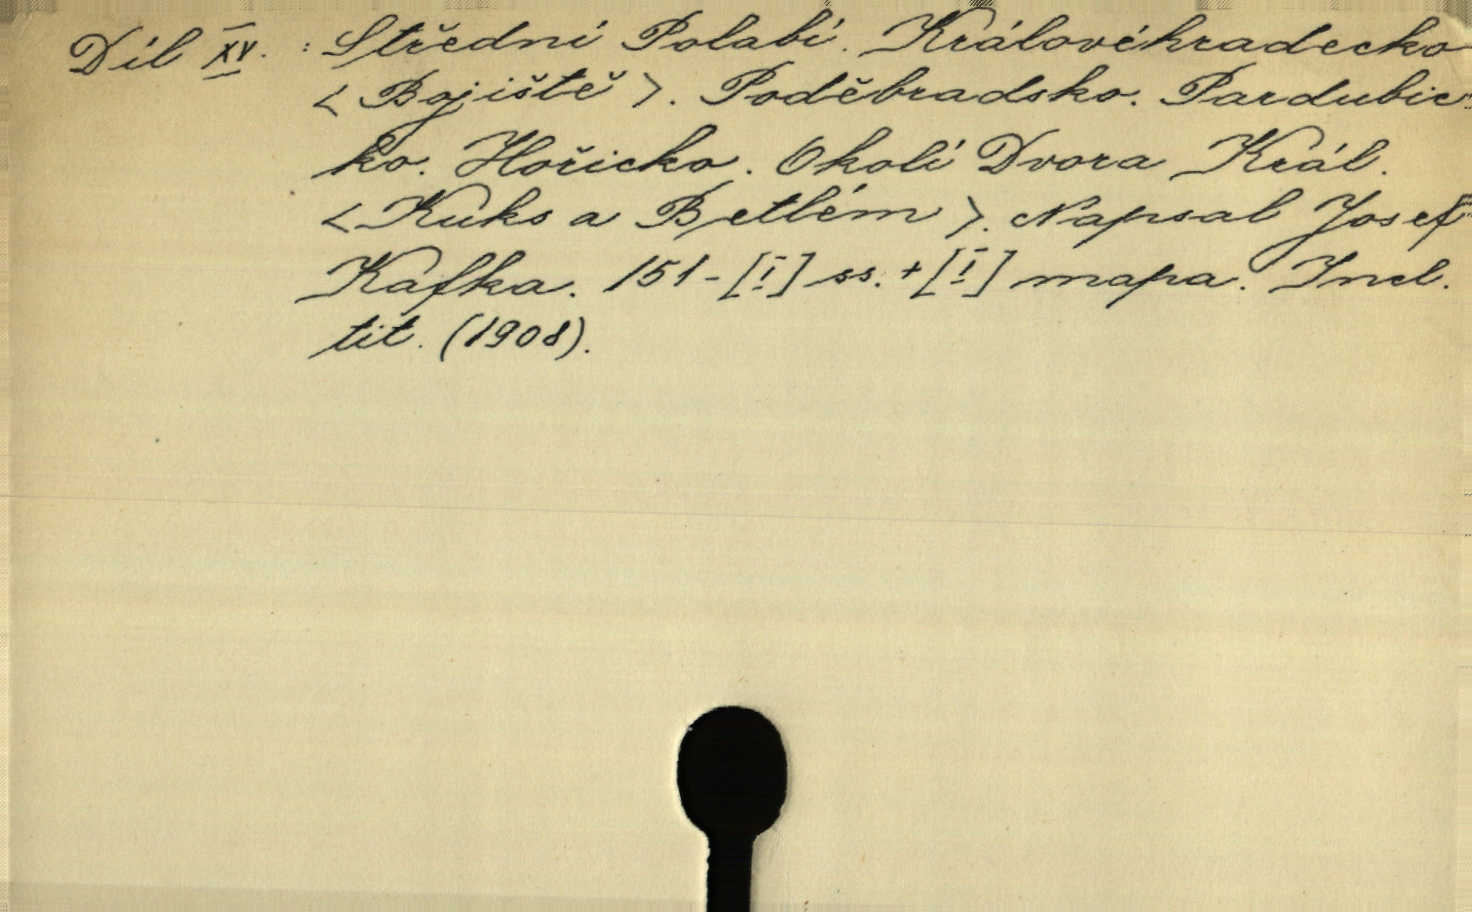 Díl XV. : Střední Polabí. Královéhradecko
<Bojiště>. Poděbradsko. Pardubic-
ko. Hořicko. Okolí Dvora Král.
<Kuks a Betlém>. Napsal Josef
Kafka. 151-[I] ss. + [I] mapa. Incl.
tit. (1908).